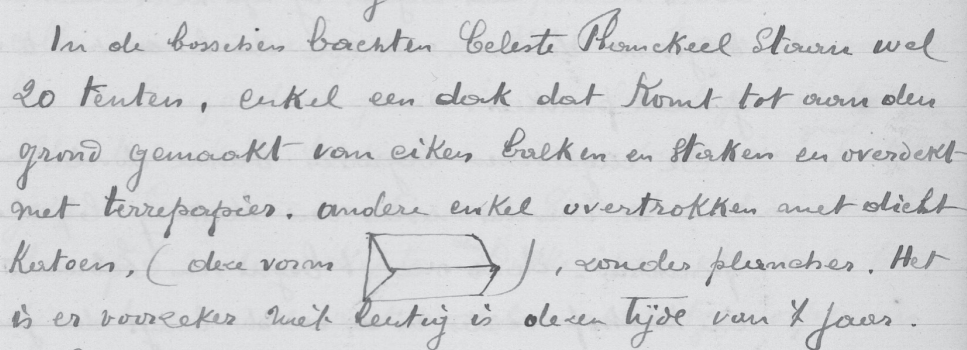 In de bosschen bachten Celeste Planckeel staan wel
20 tenten, enkel een dak dat komt tot aan den
grond gemaakt van eiken balken en staken en overdekt
met terrepapier. andere enkel overtrokken met dicht
Katoen, (deze vorm ) , zonder plancher. Het
is er voorzeker niet lentig in dezen tijde van 't jaar.